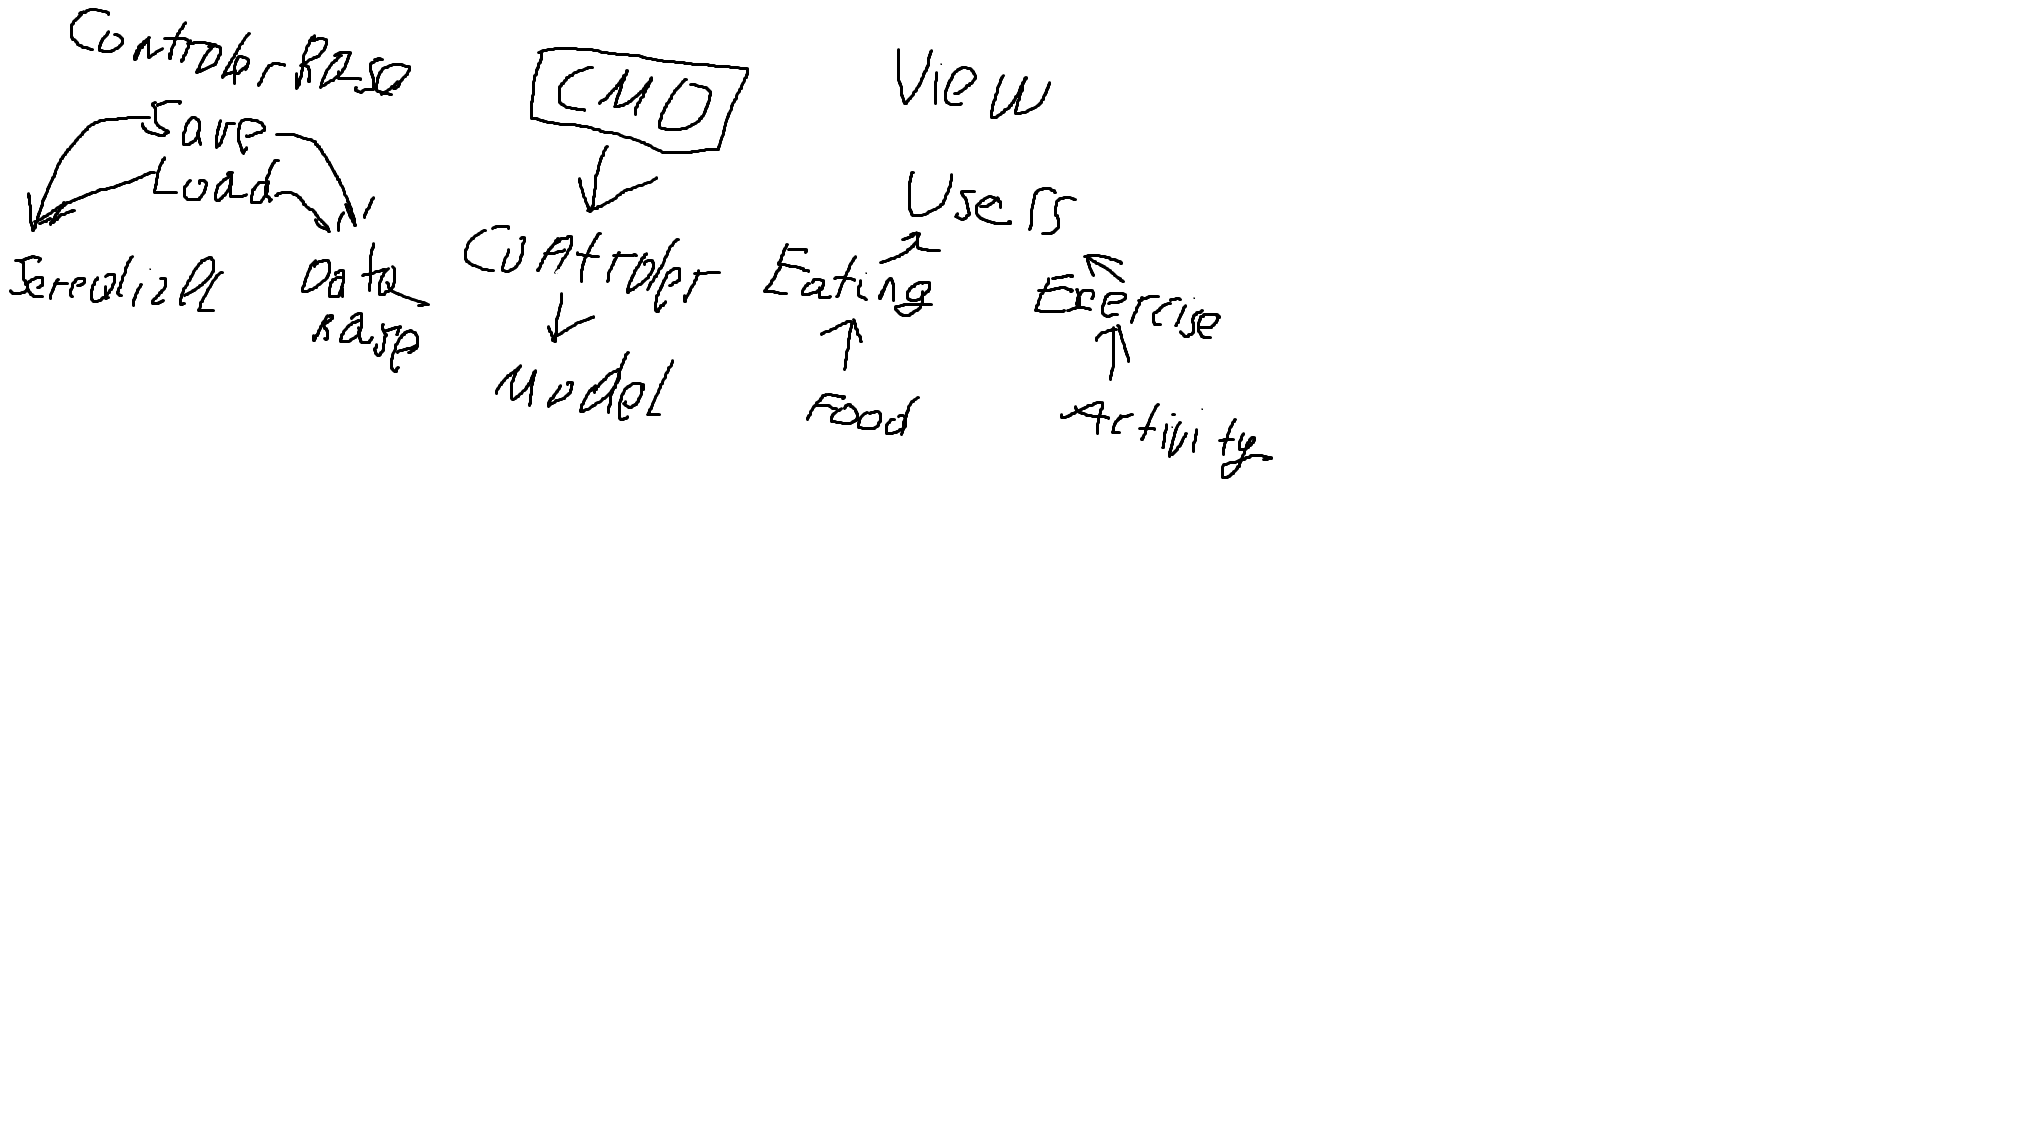 ControlerBase
Save
Load
Data
Base
CMD
Controler
Model
View
Users
Eating
Exercise
Food
Activity